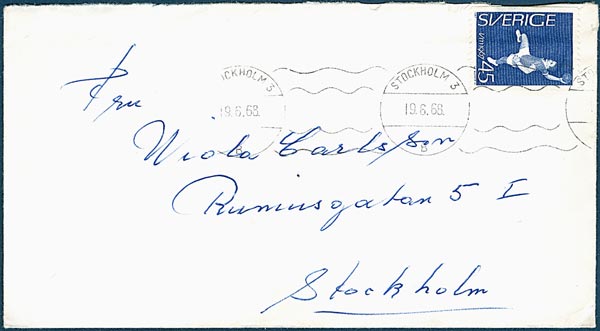 SVERIGE
VM 1967 45
STOCKHOLM 3
19.6.68.
8
STOCKHOLM 3
19.6.68.
8
Fru
Wiola Carlsson
Runiusgatan 5 I
Stockholm